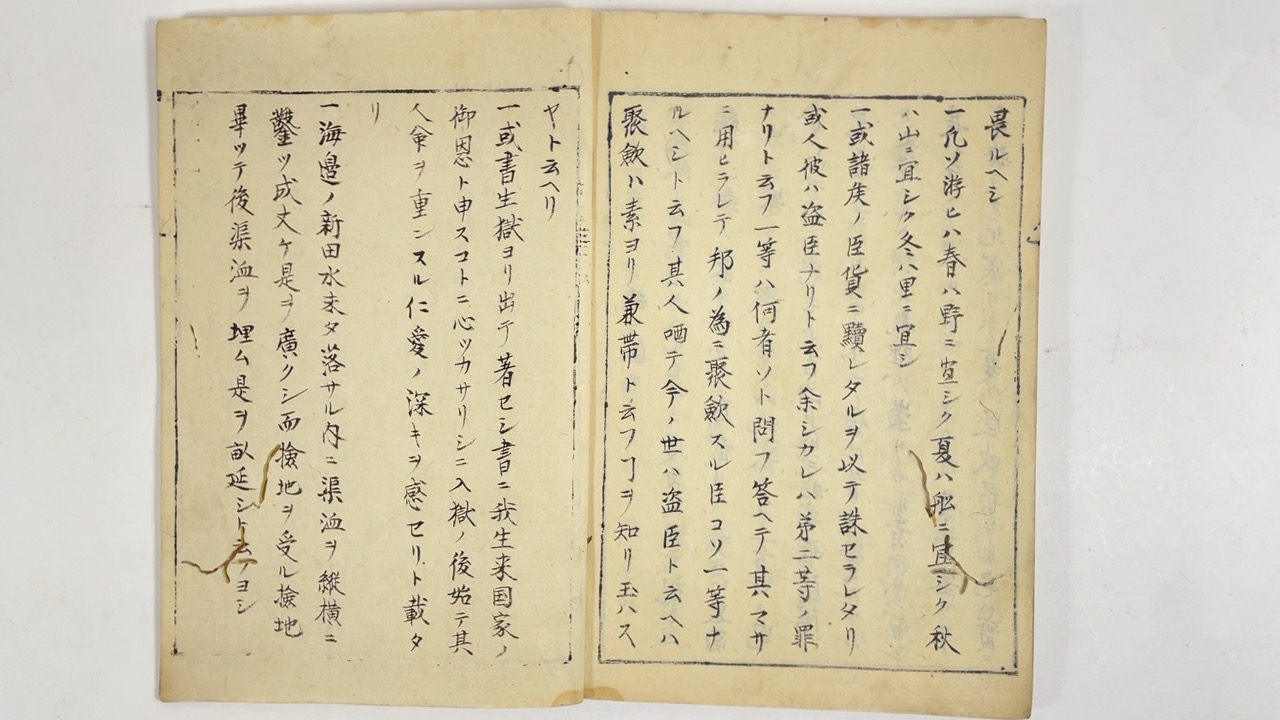 畏ルヘシ
一凡ソ游ヒハ春ハ野ニ宜シク夏ハ舩ニ宜シク秋
ハ山ニ宜シク冬ハ里ニ宜シ
一或諸矦ノ臣貨ニ黷レタルヲ以テ誅セラレタリ
或人彼ハ盗臣ナリト云フ余シカレハ第二等ノ罪
ナリト云フ一等ハ何者ソト問フ答ヘテ其マサ
ニ用ヒラレテ邦ノ為ニ聚斂スル臣コソ一等ナ
ルヘシト云フ其人哂テ今ノ世ハ盗臣ト云ヘハ
聚斂ハ素ヨリ兼帯ト云フヿヲ知リ玉ハス
ヤト云ヘリ
一或書生獄ヨリ出テ著セシ書ニ我生来国家ノ
御恩ト申スコトニ心ツカサリシニ入獄ノ後始テ其
人命ヲ重ンスル仁愛ノ深キヲ感セリト載タ
リ
一海邉ノ新田水未タ落サル内ニ渠洫ヲ縦横ニ
鑿ツ成丈ケ是ヲ廣クシ而撿地ヲ受ル撿地
畢ツテ後渠洫ヲ埋ム是ヲ畝延シト云ノヨシ